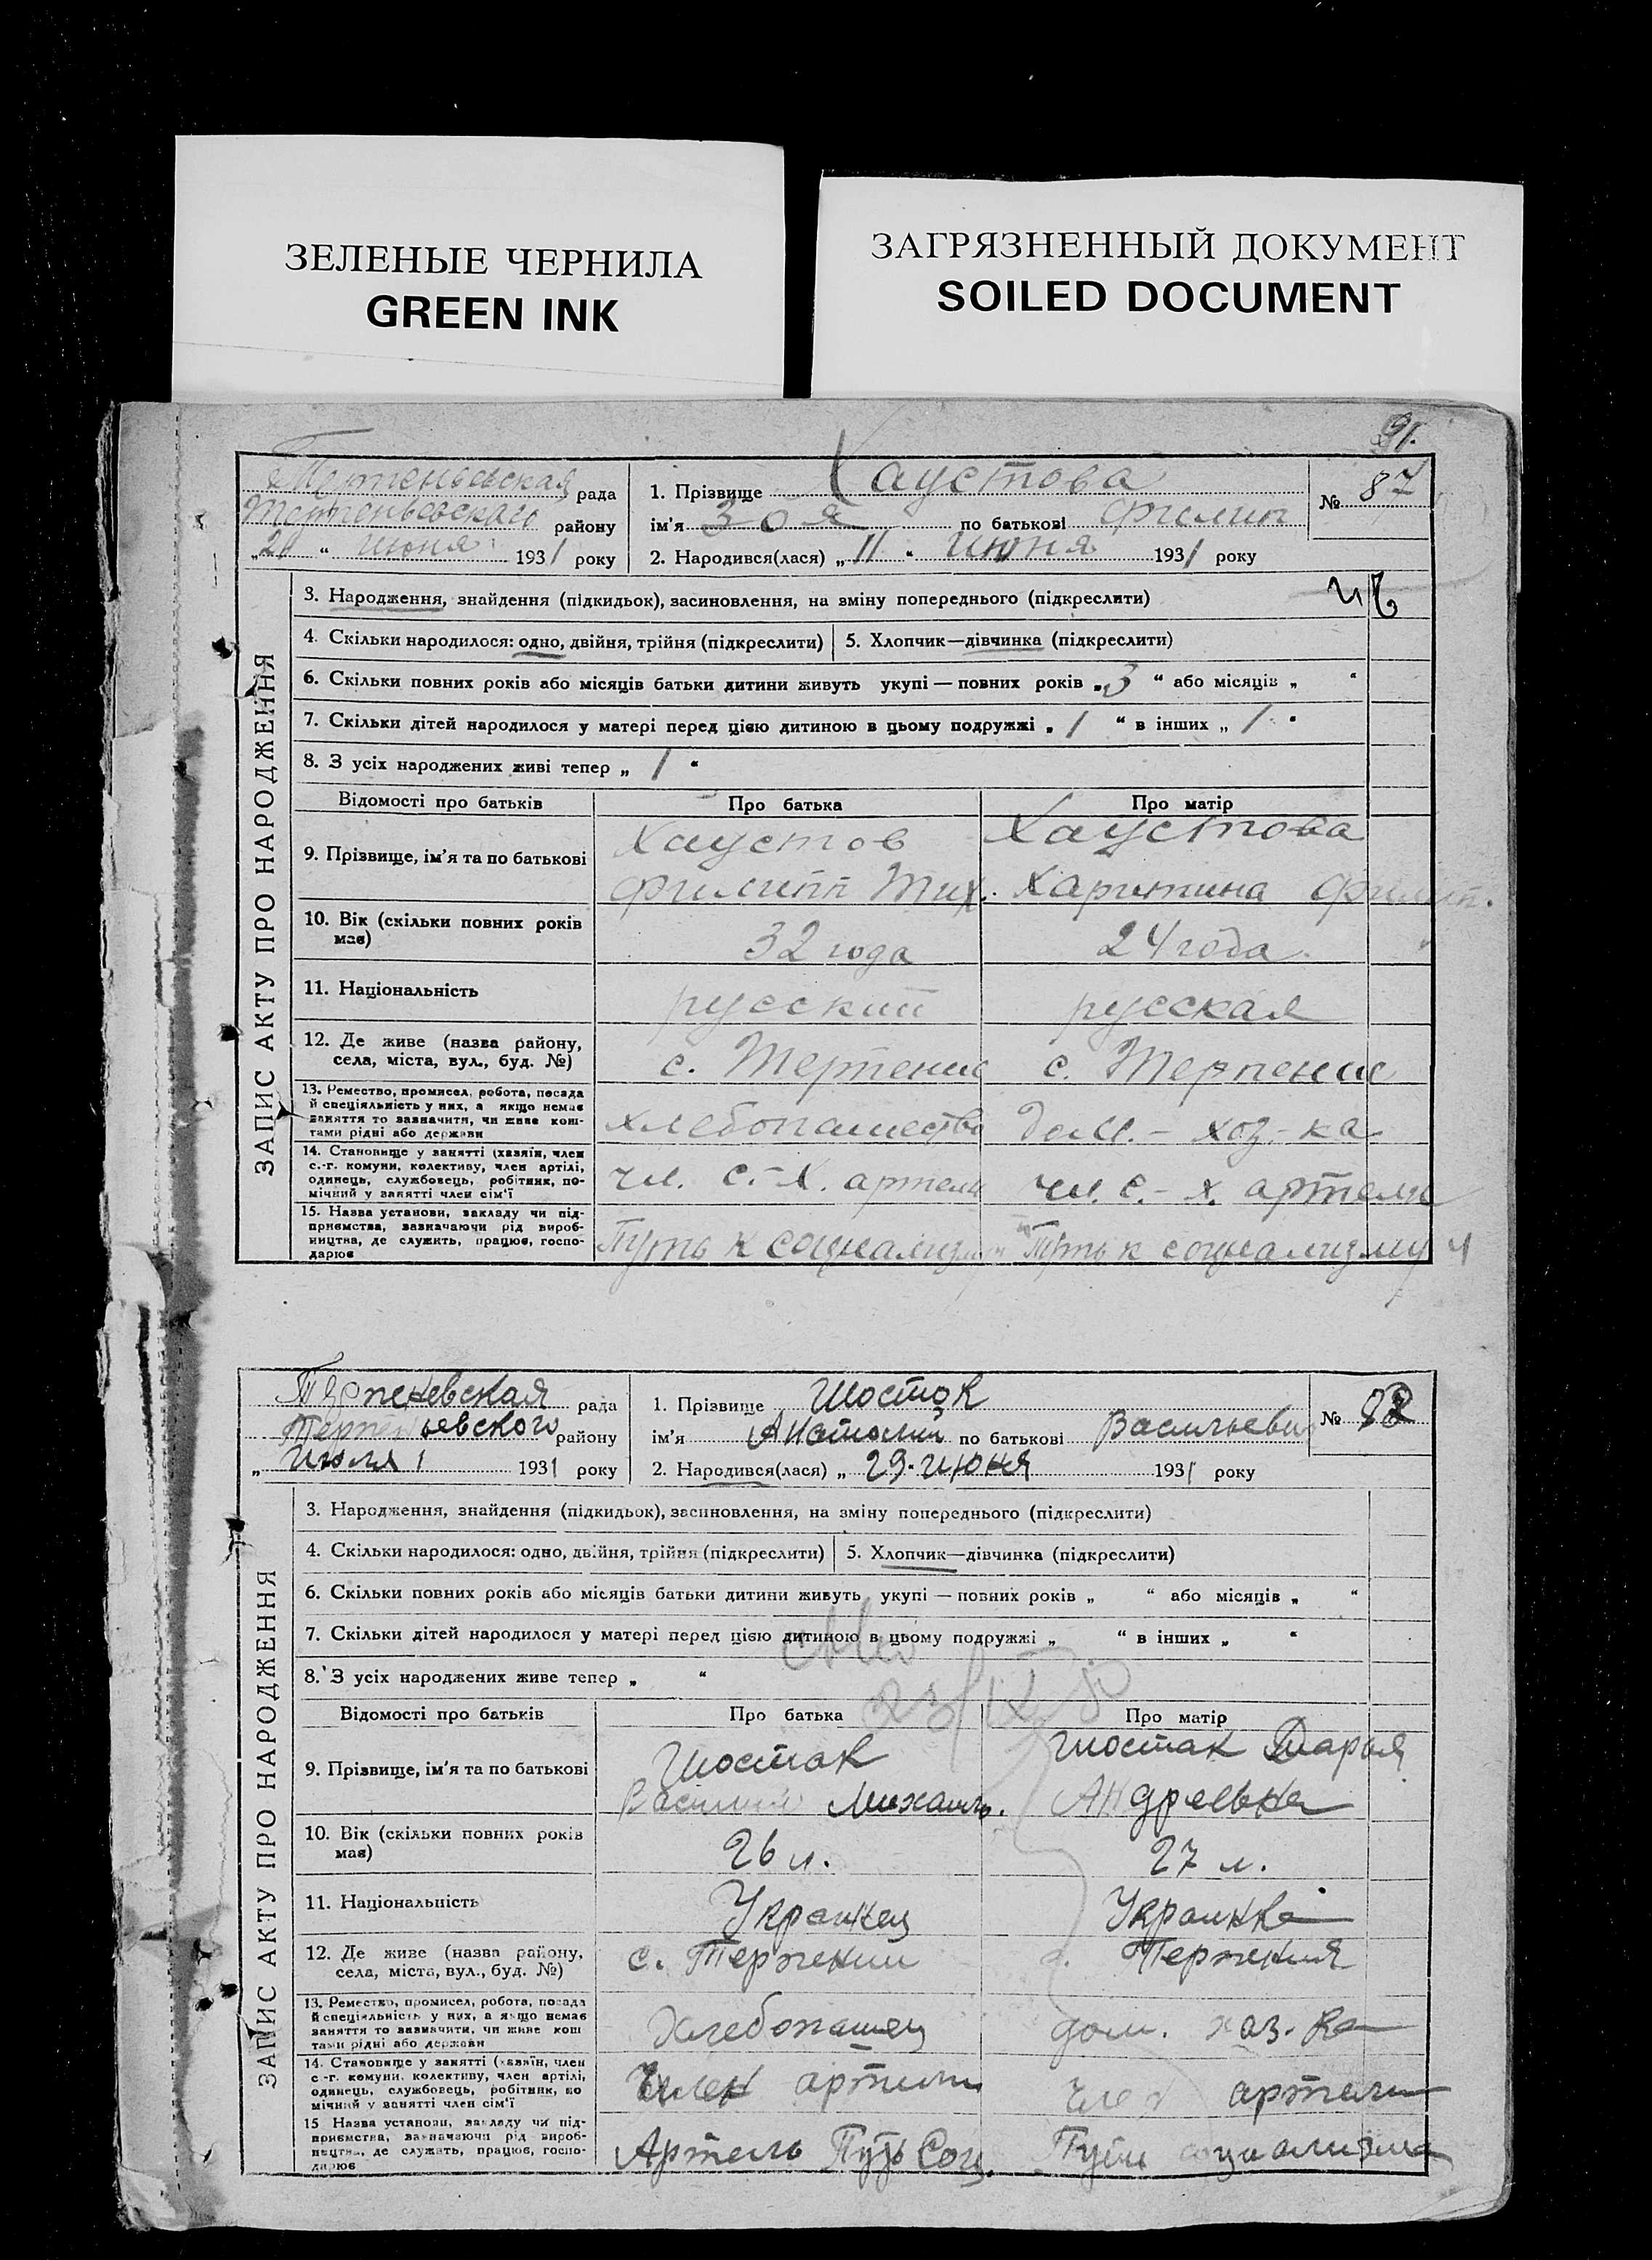 ЗЕЛЕНЫЕ ЧЕРНИЛА
GREEN INK
ЗАГРЯЗНЕННЫЙ ДОКУМЕНТ
SOILED DOCUMENT
91.
рада
району
июня 1931 року
1. Прізвище Хаустова
ім'я Зоя по батькові Филип
2. Народився(лася) „11“ июня 1931 року
№ 87
ЗАПИС АКТУ ПРО НАРОДЖЕННЯ
3. Народження, знайдення (підкидьок), засиновлення, на зміну попереднього (підкреслити)
4. Скільки народилося: одно, двійня, трійня (підкреслити) 5. Хлопчик—дівчинка (підкреслити)
6. Скільки повних років або місяців батьки дитини живуть укупі — повних років „3“ або місяців „ “
7. Скільки дітей народилося у матері перед цією дитиною в цьому подружжі „1“ в інших „1“
8. З усіх народжених живі тепер „1“
Відомості про батьків Про батька Про матір
9. Прізвище, ім'я та по батькові
Хаустов Хаустова
Филипп Тих. Харитина Филип.
10. Вік (скільки повних років має)
32 года 24 года
11. Національність
русский русская
12. Де живе (назва району, села, міста, вул., буд. №)
с. Терпение с. Терпение
13. Ремество, промисел, робота, посада
й спеціяльність у них, а якщо немає
заняття то зазначити, чи живе кош-
тами рідні або держави
хлебопашество дом.-хоз-ка
14. Становище у занятті (хазяїн, член
с.-г. комуни, колективу, член артілі,
одинець, службовець, робітник, по-
мічний у занятті член сім'ї
чл. с.-х. артели чл. с.-х. артели
15. Назва установи, закладу чи під-
приємства, зазначаючи рід вироб-
ництва, де служить, працює, госпо-
дарює
Путь к социализму Путь к социализму
Терпеневская рада
Терпеньевского району
„Июля 1 1931 року
1. Прізвище Шостак
ім'я Анатолий по батькові Васильевич
2. Народився(лася) „29. июня 1931 року
№
ЗАПИС АКТУ ПРО НАРОДЖЕННЯ
3. Народження, знайдення (підкидьок), засиновлення, на зміну попереднього (підкреслити)
4. Скільки народилося: одно, двійня, трійня (підкреслити) 5. Хлопчик—дівчинка (підкреслити)
6. Скільки повних років або місяців батьки дитини живуть укупі — повних років „ “ або місяців „ “
7. Скільки дітей народилося у матері перед цією дитиною в цьому подружжі „ “ в інших „ “
8. З усіх народжених живе тепер „ “
Відомості про батьків Про батька Про матір
9. Прізвище, ім'я та по батькові
Шостак Шостак Дарья
Василий Михайл. Андреевна
10. Вік (скільки повних років має)
26 л. 27 л.
11. Національність
Украинец Украинка
12. Де живе (назва району, села, міста, вул., буд. №)
с. Терпении с. Терпения
13. Ремество, промисел, робота, посада
й спеціяльність у них, а якщо немає
заняття то зазначити, чи живе кош
тами рідні або держави
Хлебопашец дом. хаз-ка
14. Становище у занятті (хазяїн, член
с-г. комуни, колективу, член артілі,
одинець, службовець, робітник, по
мічний у занятті член сім'ї
Член артили член артели
15 Назва установи, закладу чи під-
приємства, зазначаючи рід вироб-
ництва, де служать, працює, госпо-
дарює
Артель Путь Соц. Путь социализма